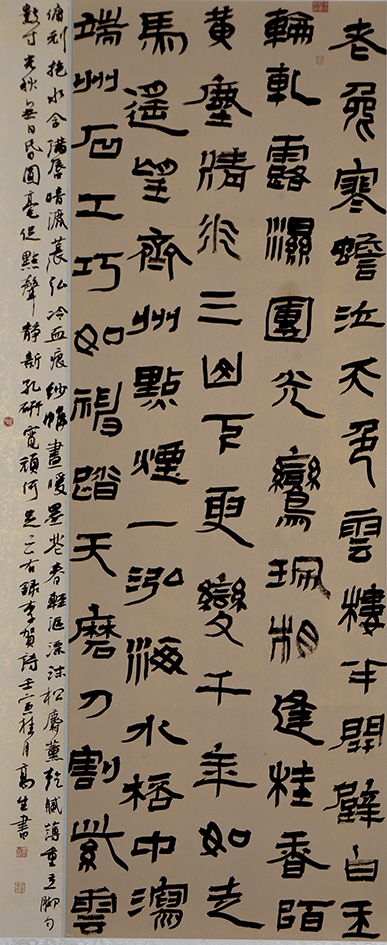 老兔寒蟾泣天色雲樓半開壁白玉
輪軋露濕團光鸞珮相逢桂香陌
黃塵清水三山下更變千年如走
馬遥望齊州點煙一泓海水桮中瀉
端州石工巧如神踏天磨刀割紫雲
傭刓抱水含滿唇暗灑萇弘冷血痕紗帷晝暖墨花春輕漚漂沫松麝薰乾膩薄重立腳勻
數寸光秋無日昏圓毫促點聲靜新孔硯寬頑何足云右録李賀詩壬寅桂月高生書